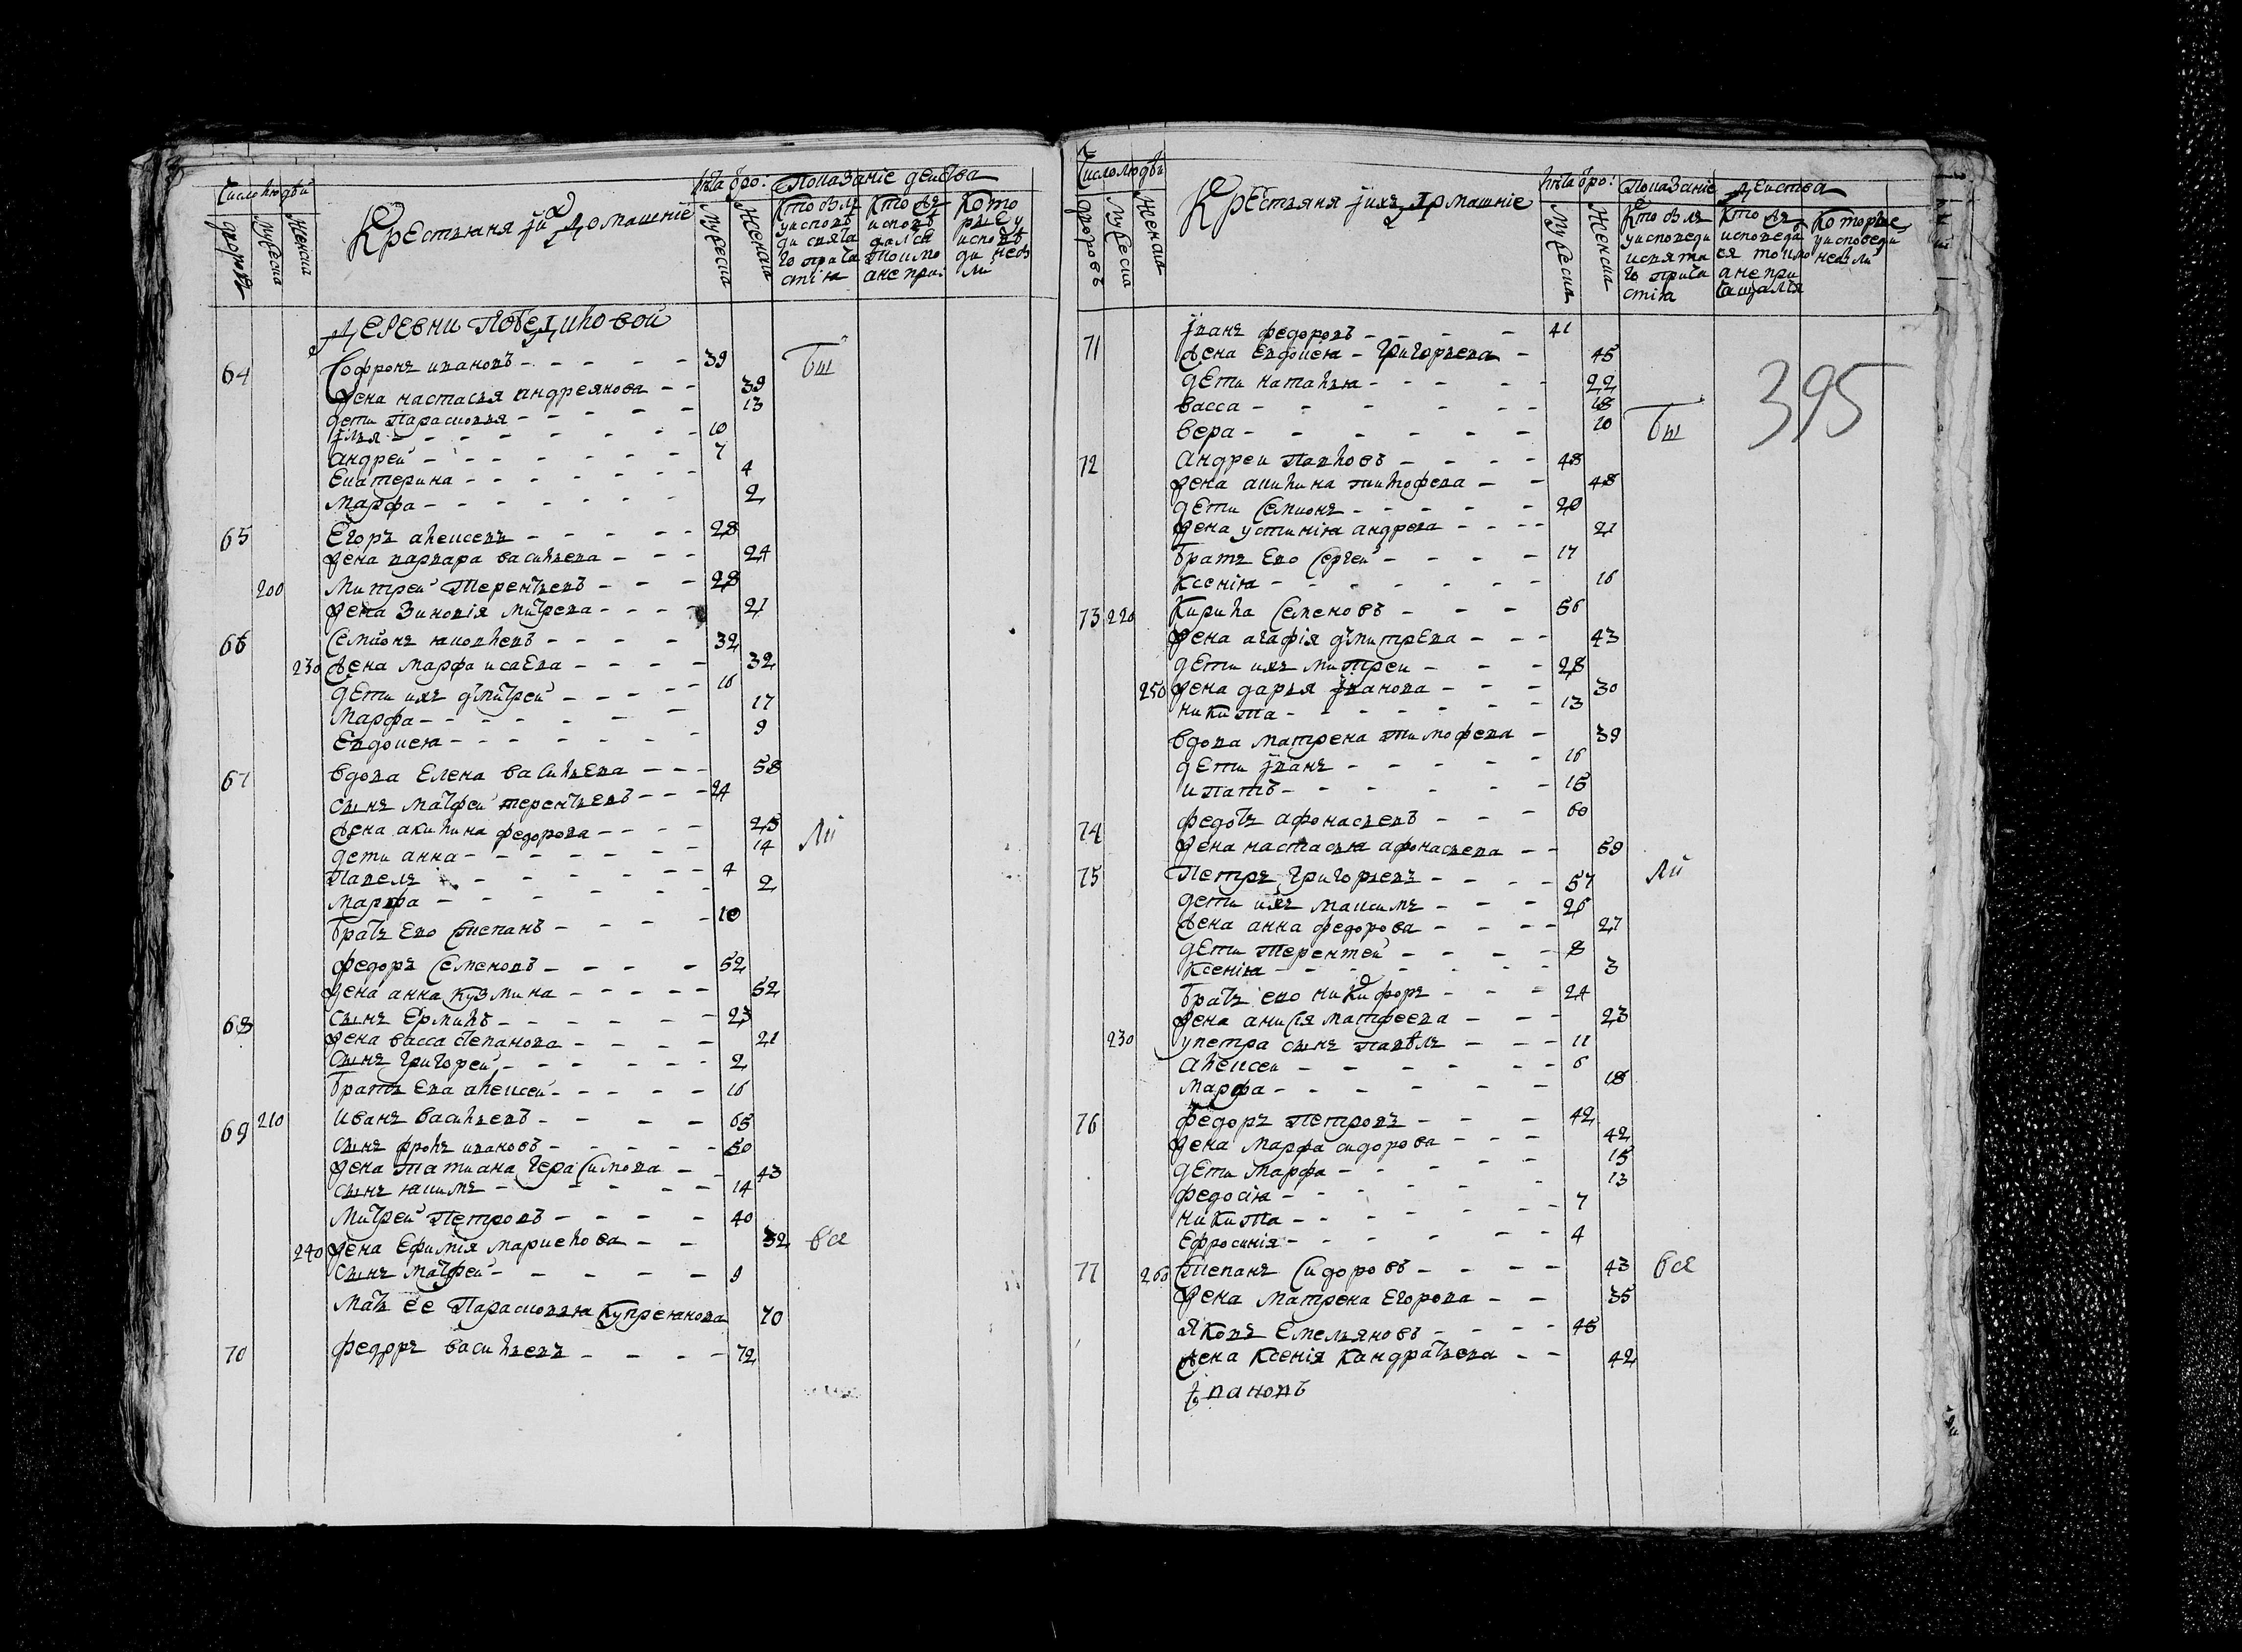 Число людей
дворовъ
Мужеска
Женска
Крестьяня и ихъ Домашніе
Лѣта ѿ ро:
Мужеска
Женска
Показаніе действа
Деревни
64 Софронъ ивановъ 39
Жена настасья андреянова 39
дети Парасковья 13
илья 10
андрей 7
Екатерина 4
Марфа 2
65 Егоръ алексеевъ 28
Жена варвара васильева 24
200 Митрей Терентьевъ 28
Жена Зиновія Митрева 21
66 Семионъ яковлевъ 32
230 Жена Марфа исаева 32
дети ихъ дмитрей 16
Марфа 17
Евдокея 9
67 вдова Елена васильева 58
сынъ матфей терентьевъ 24
Жена акилина федорова 25
дети анна 14
Павелъ 4
Марфа 2
братъ Ево Степанъ 10
федоръ Семеновъ 52
Жена анна кузмина 52
68 сынъ Ермилъ 23
Жена васса степанова 21
сынъ григорей 2
братъ Ева алексей 16
69 210 иванъ васильевъ 65
сынъ фролъ ивановъ 50
Жена татиана герасимова 43
сынъ якимъ 14
Митрей Петровъ 40
240 Жена Ефимія Маркелова 32
сынъ Матфей 9
Мать ее Парасковья Купреянова 70
70 федоръ васильевъ 72
бы
ли
все
Число людѣй
дворовъ
Мужеска
Женска
Крестьяня и ихъ домашніе
Лѣта ѿ ро:
Мужеска
Женска
Показаніе действа
Кто были
у исповеди
и свята
го прича
стия
Кто
исповеда
ся токмо
а не при
чащался
Которые
у исповеди
не были
71 иванъ федоровъ 41
Жена Евдокея Григорьева 45
дети наталья 22
васса 18
вера 10
72 андрей Павловъ 48
Жена акилина тимофева 48
дети Семионъ 20
Жена устинія андрева 21
братъ Ево Сергей 17
Ксенія 16
73 220 Кирила Семеновъ 56
Жена агафія дмитрева 43
дети ихъ митрей 28
250 Жена дарья иванова 30
никита 13
вдова матрена тимофева 39
дети иванъ 16
ипатъ 15
74 федотъ афонасьевъ 60
Жена настасья афонасьева 59
75 Петръ григорьевъ 57
дети ихъ максимъ 26
Жена анна федорова 27
дети терентей 8
Ксенія 3
братъ ево никифоръ 24
Жена анисія матфеева 23
230 у петра сынъ павѣлъ 11
алексей 6
марфа 18
76 федоръ петровъ 42
Жена марфа сидорова 42
дети марфа 15
федосія 13
никита 7
Ефросинія 4
77 260 степанъ Сидоровъ 43
Жена матрена Егорова 35
яковъ Емельяновъ 45
Жена Ксенія Кандратьева 42
ивановъ
бы
ли
все
395